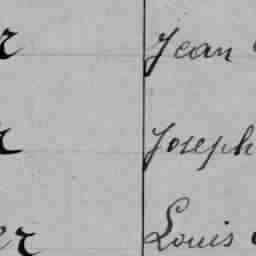 r Jean
r Joseph
er Louis